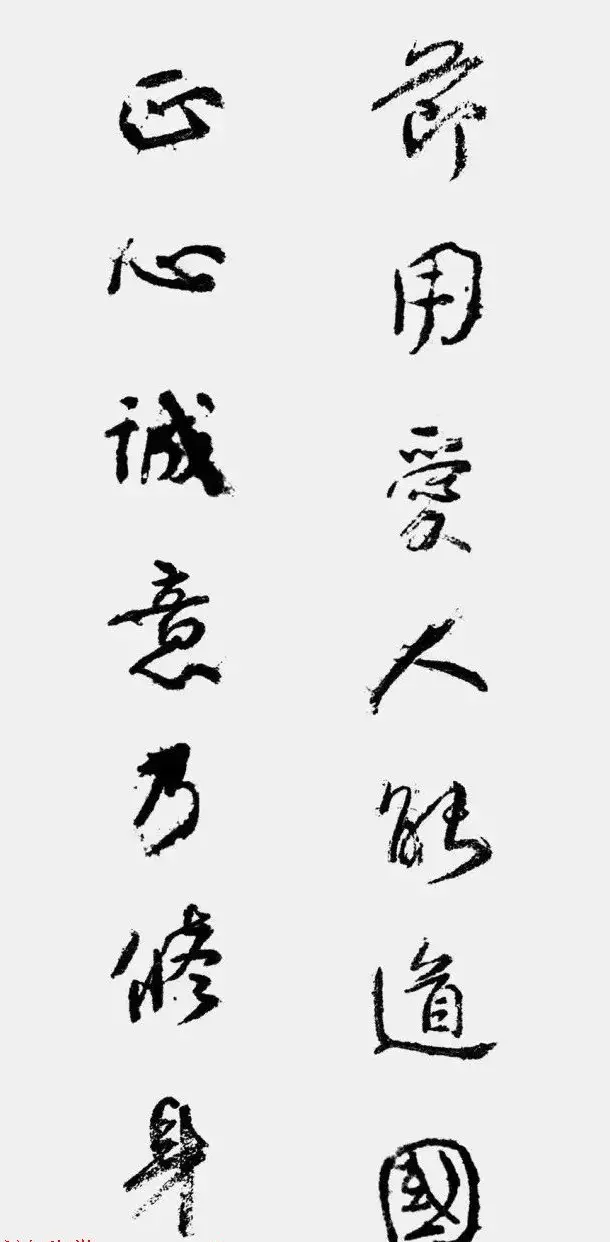 節用愛人能道國
正心誠意乃修身